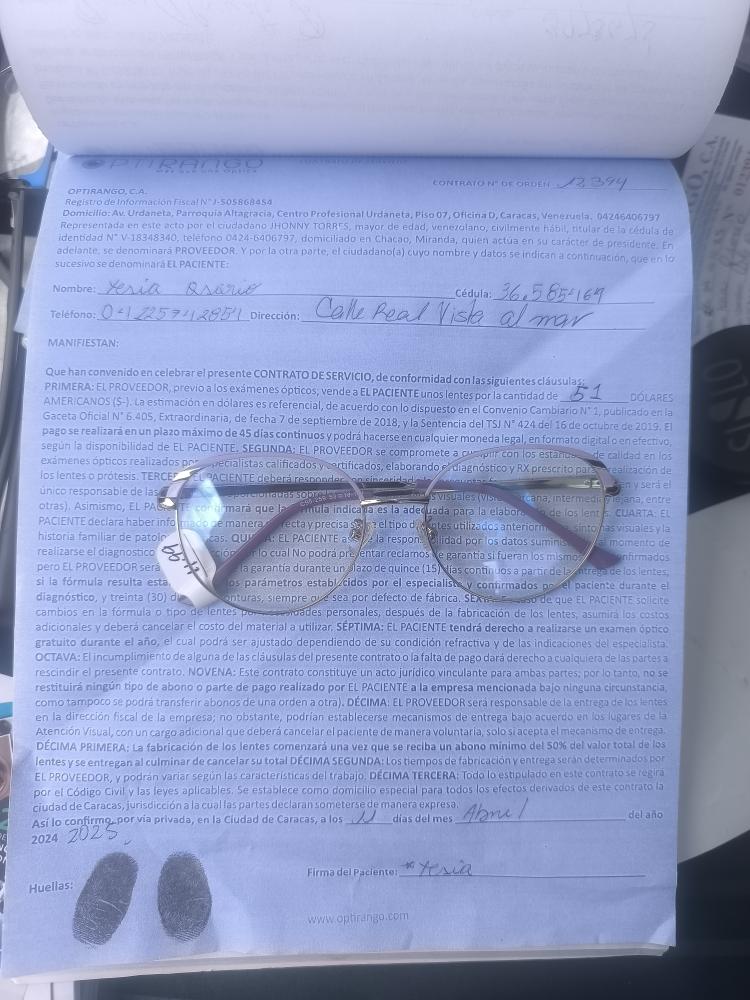 OPTIRANGO
CONTRATO N° DE ORDEN 12394
OPTIRANGO, C.A.
Registro de Información Fiscal N° J-505868454
Domicilio: Av. Urdaneta, Parroquia Altagracia, Centro Profesional Urdaneta, Piso 07, Oficina D, Caracas, Venezuela. 04246406797
Representada en este acto por el ciudadano JHONNY TORRES, mayor de edad, venezolano, civilmente hábil, titular de la cédula de
identidad N° V-18348340, teléfono 0424-6406797, domiciliado en Chacao, Miranda, quien actúa en su carácter de presidente. En
adelante, se denominará PROVEEDOR. Y por la otra parte, el ciudadano(a) cuyo nombre y datos se indican a continuación, que en lo
sucesivo se denominará EL PACIENTE:
Nombre: Yesia Osario Cédula: 36.585.169
Teléfono: Dirección: Calle Real Vista al mar
MANIFIESTAN:
Que han convenido en celebrar el presente CONTRATO DE SERVICIO, de conformidad con las siguientes cláusulas:
PRIMERA: EL PROVEEDOR, previo a los exámenes ópticos; vende a EL PACIENTE unos lentes por la cantidad de 51 DÓLARES
AMERICANOS ($-). La estimación en dólares es referencial, de acuerdo con lo dispuesto en el Convenio Cambiario N° 1, publicado en la
Gaceta Oficial N° 6.405, Extraordinaria, de fecha 7 de septiembre de 2018, y la Sentencia del TSJ N° 424 del 16 de octubre de 2019. El
pago se realizará en un plazo máximo de 45 días continuos y podrá hacerse en cualquier moneda legal, en formato digital o en efectivo,
según la disponibilidad de EL PACIENTE. SEGUNDA: EL PROVEEDOR se compromete a cumplir con los estándares de calidad en los
exámenes ópticos realizados por especialistas calificados y certificados, elaborando el diagnóstico y RX prescrito para la realización de
los lentes o prótesis. TERCERA: EL PACIENTE deberá responder con sinceridad y será el
único responsable de las visuales intermedia, entre
otras). Asimismo, EL PACIENTE confirmará que la fórmula indicada es la adecuada para la elaboración de los lentes. CUARTA: EL
PACIENTE declara haber informado de manera correcta y precisa el tipo de lentes utilizados anteriormente, síntomas visuales y la
historia familiar de QUINTA: EL PACIENTE datos suministrados al momento de
realizarse el diagnostico por lo cual No podrá presentar reclamos garantía si fueran los mismos confirmados
pero EL PROVEEDOR garantía durante un lazo de quince (15) días continuos a partir de la entrega de los lentes,
si la fórmula resulta los parámetros establecidos por el especialista y confirmados el paciente durante el
diagnóstico, y treinta (30) monturas, siempre que sea por defecto de fábrica. SEXTA: de que EL PACIENTE solicite
cambios en la fórmula o tipo de lentes por necesidades personales, después de la fabricación de los lentes, asumirá los costos
adicionales y deberá cancelar el costo del material a utilizar. SÉPTIMA: EL PACIENTE tendrá derecho a realizarse un examen óptico
gratuito durante el año, el cual podrá ser ajustado dependiendo de su condición refractiva y de las indicaciones del especialista.
OCTAVA: El incumplimiento de alguna de las cláusulas del presente contrato o la falta de pago dará derecho a cualquiera de las partes a
rescindir el presente contrato. NOVENA: Este contrato constituye un acto jurídico vinculante para ambas partes; por lo tanto, no se
restituirá ningún tipo de abono o parte de pago realizado por EL PACIENTE a la empresa mencionada bajo ninguna circunstancia,
como tampoco se podrá transferir abonos de una orden a otra). DÉCIMA: EL PROVEEDOR será responsable de la entrega de los lentes
en la dirección fiscal de la empresa; no obstante, podrían establecerse mecanismos de entrega bajo acuerdo en los lugares de la
Atención Visual, con un cargo adicional que deberá cancelar el paciente de manera voluntaria, solo si acepta el mecanismo de entrega.
DÉCIMA PRIMERA: La fabricación de los lentes comenzará una vez que se reciba un abono mínimo del 50% del valor total de los
lentes y se entregan al culminar de cancelar su total DÉCIMA SEGUNDA: Los tiempos de fabricación y entrega serán determinados por
EL PROVEEDOR, y podrán variar según las características del trabajo. DÉCIMA TERCERA: Todo lo estipulado en este contrato se regirá
por el Código Civil y las leyes aplicables. Se establece como domicilio especial para todos los efectos derivados de este contrato la
ciudad de Caracas, jurisdicción a la cual las partes declaran someterse de manera expresa.
Así lo confirmo, por vía privada, en la Ciudad de Caracas, a los 11 días del mes Abril del año
2024 2025.
Huellas: Firma del Paciente: *Yesia
www.optirango.com